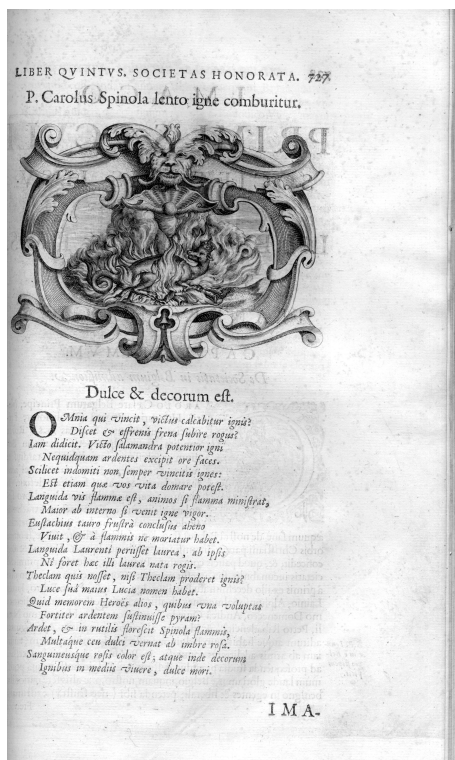 LIBER QVINTVS. SOCIETAS HONORATA. 727.
P. Carolus Spinola lento igne comburitur.
Dulce & decorum eſt.
OMnia qui vincit, victus calcabitur ignis?
Diſcet & effrenis frena ſubire rogus?
Iam didicit. Victo ſalamandra potentior igni
Nequidquam ardentes excipit ore faces.
Scilicet indomiti non ſemper vincitis ignes:
Eſt etiam quæ vos vita domare poteſt.
Languida vis flammæ eſt, animos ſi flamma miniſtrat,
Maior ab interno ſi venit igne vigor.
Euſtachius tauro fruſtrà concluſus aheno
Viuit, & à flammis ne moriatur habet.
Languida Laurenti periſſet laurea, ab ipſis
Nî foret hæc illi laurea nata rogis.
Theclam quis noſſet, niſi Theclam proderet ignis?
Luce ſuâ maius Lucia nomen habet.
Quid memorem Heroës alios, quibus vna voluptas
Fortiter ardentem ſuſtinuiſſe pyram?
Ardet, & in rutilis floreſcit Spinola flammis,
Multaque ceu dulci vernat ab imbre roſa.
Sanguineuſque roſis color eſt; atque inde decorum
Ignibus in mediis viuere, dulce mori.
IMA-